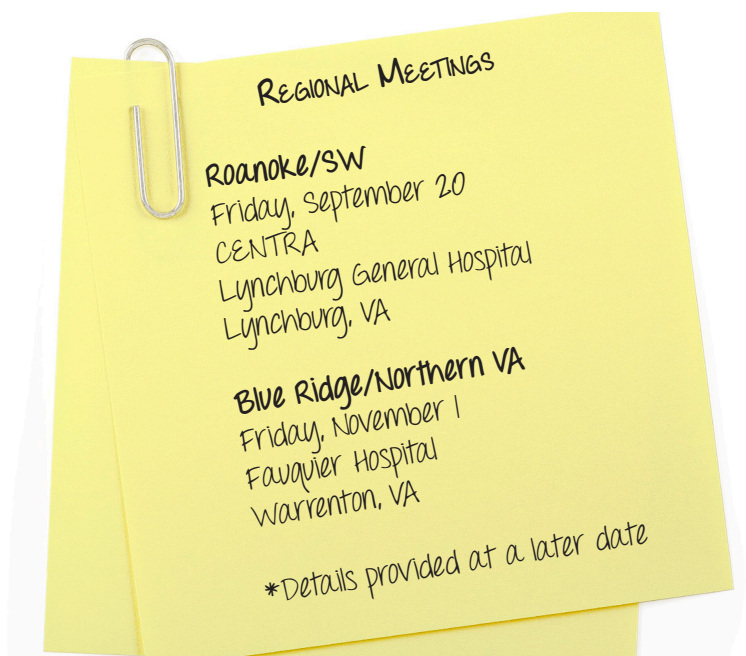 Regional Meetings
Roanoke/SW
Friday, September 20
CENTRA
Lynchburg General Hospital
Lynchburg, VA
Blue Ridge/Northern VA
Friday, November 1
Fauquier Hospital
Warrenton, VA
*Details provided at a later date